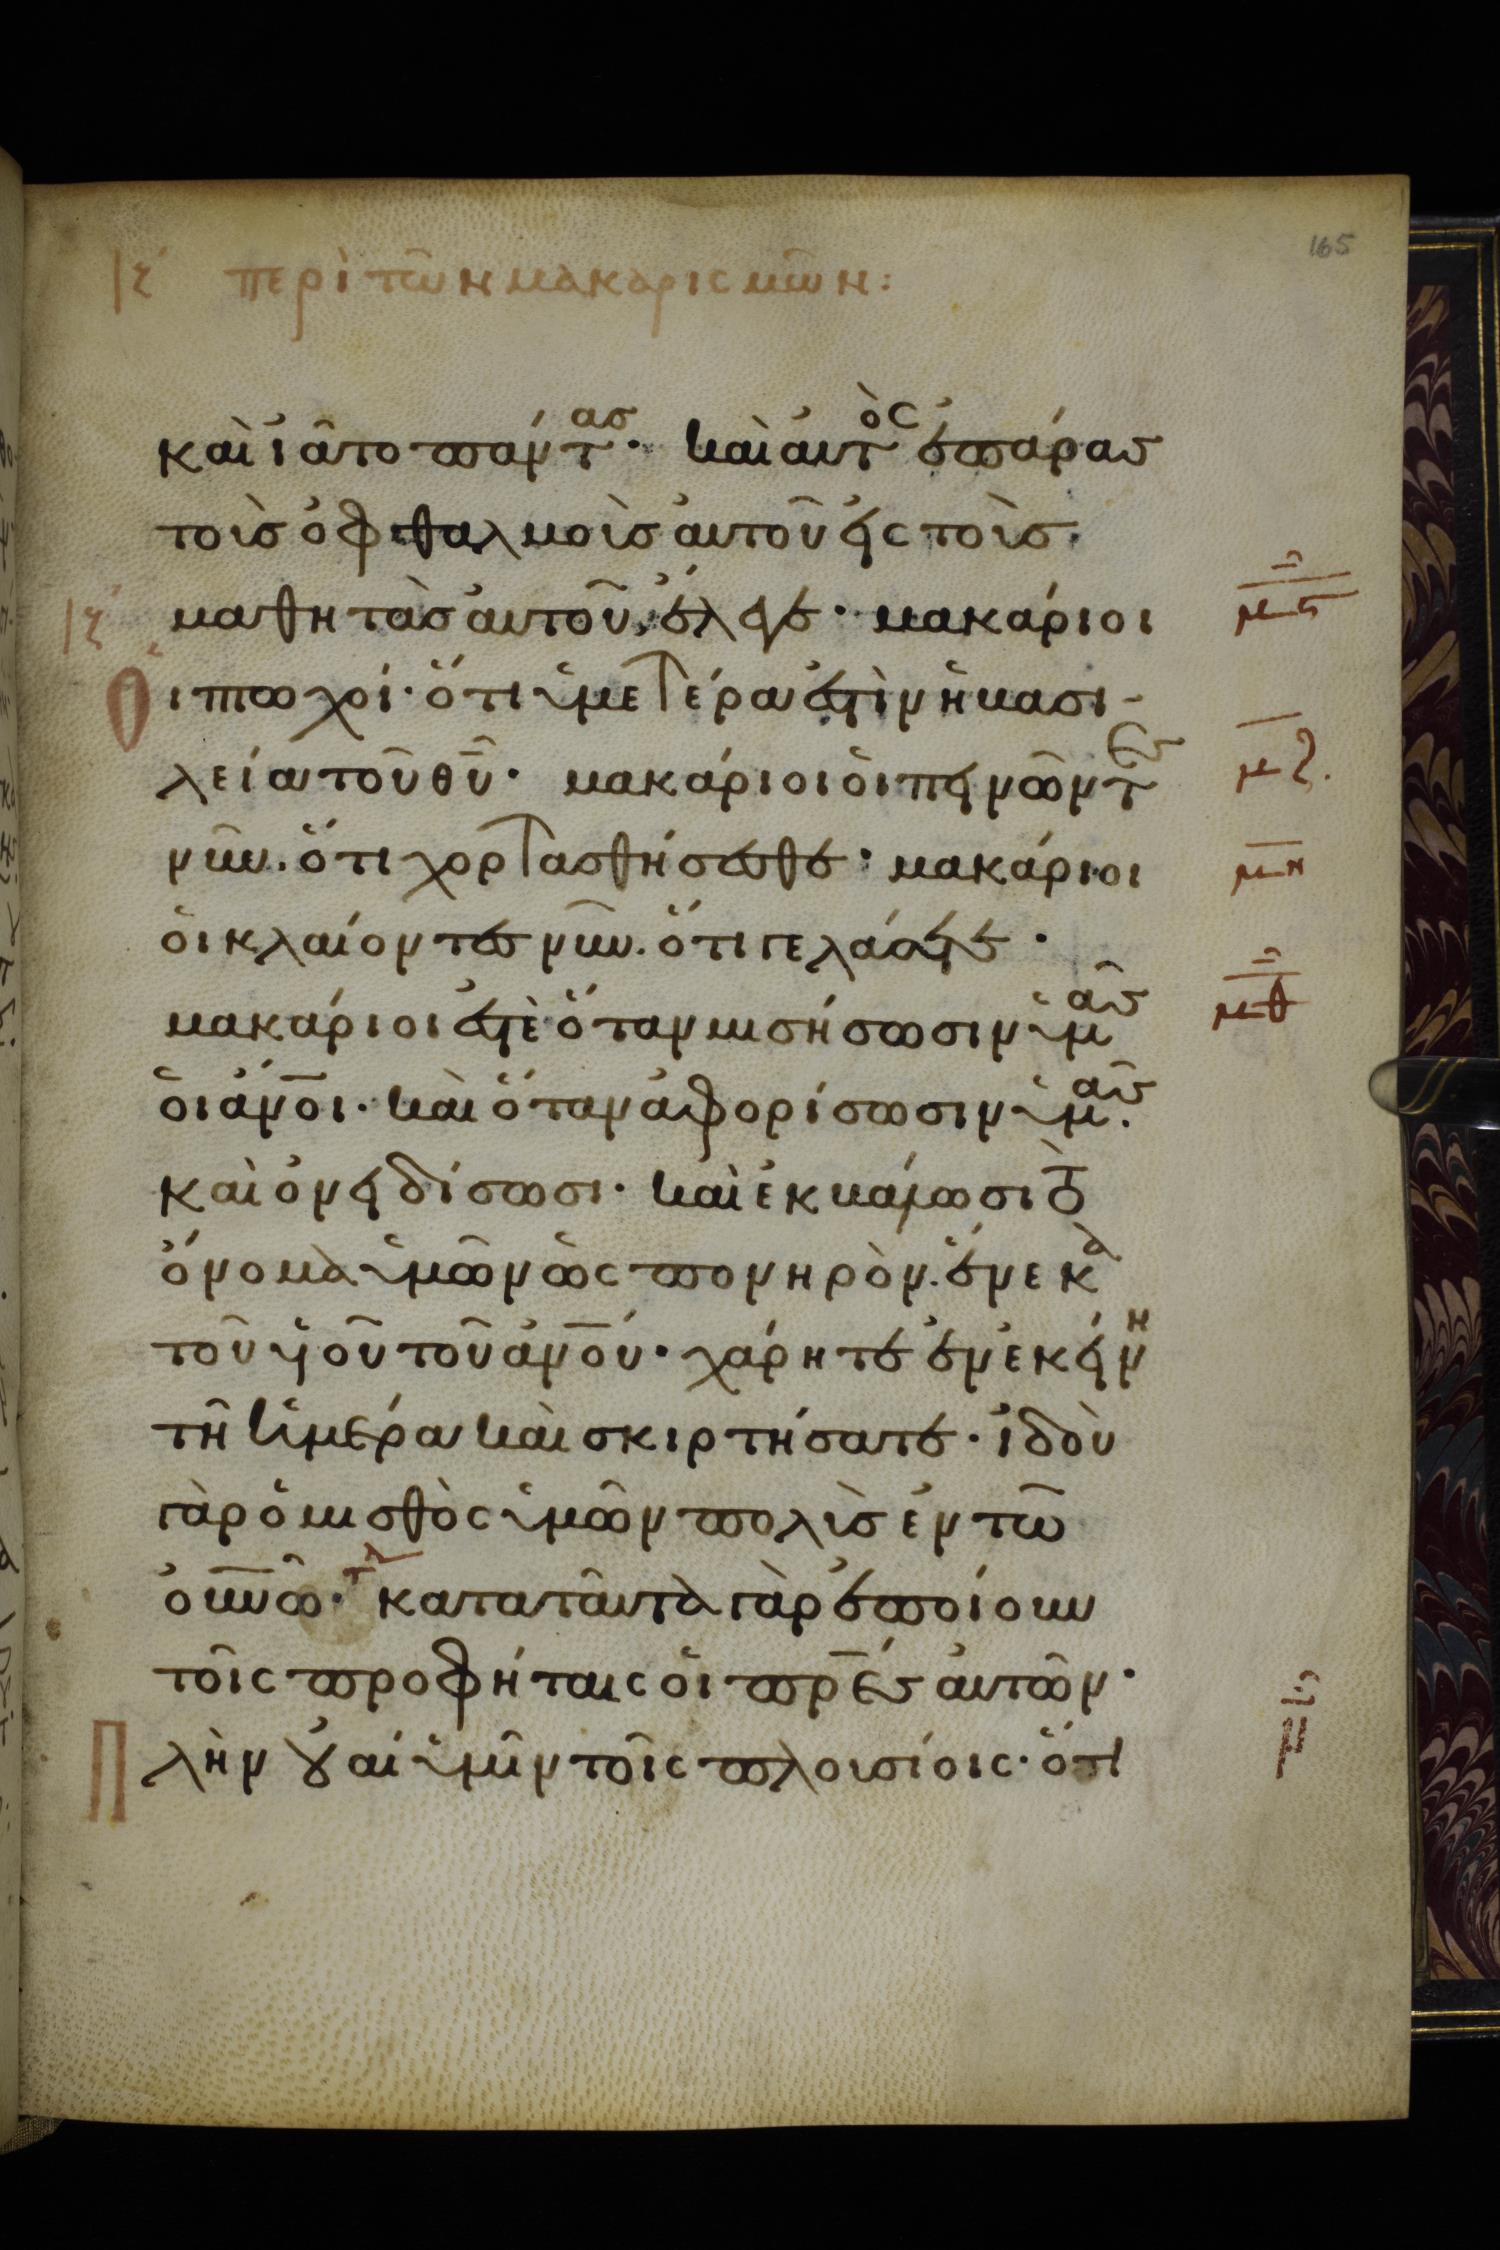 165
ιζ´ περὶ τῶν μακαρισμῶν:
καὶ ἰᾶτο πάντας· καὶ αὐτὸς ἐπάρας
τοὶς ὀφθαλμοὶς αὐτοῦ εἰς τοὶς
ιζ´ μαθητὰς αὐτοῦ, ἔλεγε· μακάριοι
Οἱ πτωχοί· ὅτι ὑμετέρα ἐστὶν ἡ βασι-
λεία τοῦ θῦ· μακάριοι οἱ πεινῶντες
νῦν. ὅτι χορτασθήσεσθε· μακάριοι
οἱ κλαίοντες νῦν. ὅτι γελάσετε·
μακάριοι ἐστὲ ὅταν μισήσωσιν ὑμᾶς
οἱ ἄνοι· καὶ ὅταν ἀφορίσωσιν ὑμᾶς.
καὶ ὀνειδίσωσι· καὶ ἐκβάλωσι τὸ
ὄνομα ὑμῶν ὡς πονηρὸν. ἕνεκα
τοῦ ὑοῦ τοῦ ἀνου· χάρητε ἐν ἐκείνη
τῆ ἡμέρα καὶ σκιρτήσατε· ἰδοὺ
γὰρ ὁ μισθὸς ὑμῶν πολὶς ἐν τῶ
οὐνῶ· τλ κατα ταῦτα γὰρ ἐποίουν
τοῖς προφήταις οἱ πρες αὐτῶν·
Πλὴν οὐαί ὑμῖν τοῖς πλουσίοις· ὅτι
μϛ
μζ.
μη
μθ
ν